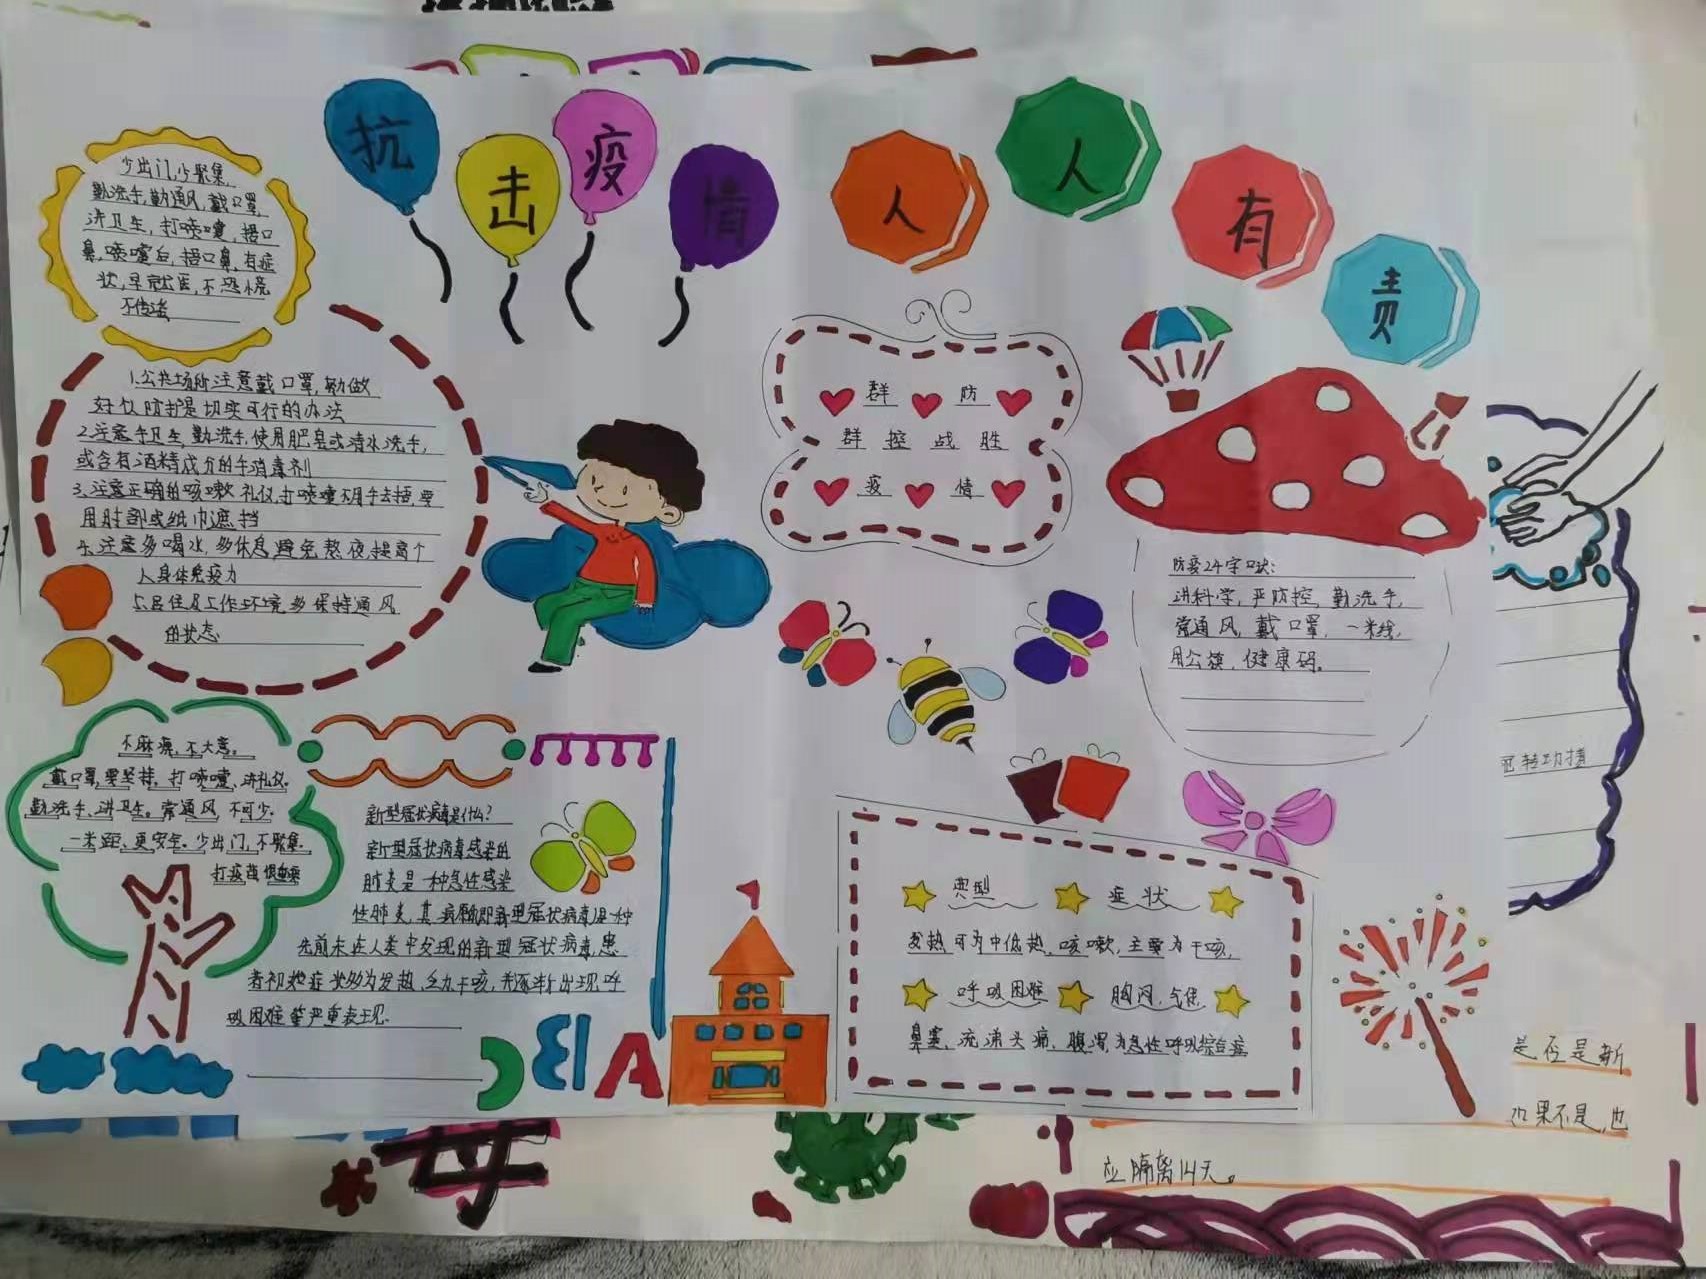 抗击疫情
人人有责
少出门,少聚集,
勤洗手,勤通风,戴口罩,
讲卫生,打喷嚏,捂口
鼻,喷嚏后,捂口鼻,有症
状,早就医,不恐慌
不传谣
1.公共场所注意戴口罩,勤做
好仪防护是切实可行的办法
2.注意手卫生,勤洗手,使用肥皂或清水洗手,
或含有酒精成分的手消毒剂
3.注意正确的咳嗽礼仪,打喷嚏不用手去捂,要
用肘部或纸巾遮挡
4.注意多喝水,多休息,避免熬夜,提高个
人身体免疫力
5.居住及工作环境多保持通风
的状态
群防
群控战胜
疫情
防疫24字口诀:
讲科学,严防控,勤洗手,
常通风,戴口罩,一米线,
用公筷,健康码。
不麻痹,不大意。
戴口罩,要坚持,打喷嚏、讲礼仪。
勤洗手、讲卫生。常通风 不可少。
一米距、更安全。少出门,不聚集。
打疫苗 很重要
新型冠状病毒是什么?
新型冠状病毒感染的
肺炎是一种急性感染
性肺炎,其病原即新型冠状病毒)是一种
先前未在人类中发现的新型冠状病毒,患
者初始症状多为发热,乏力干咳,并逐渐出现呼
吸困难等严重表现.
ABC
典型 症状
发热,可为中低热,咳嗽,主要为干咳,
呼吸困难 胸闷,气促
鼻塞、流涕头痛、腹泻,为急性呼吸综合症
是否是新
如果不是,也
应隔离14天。